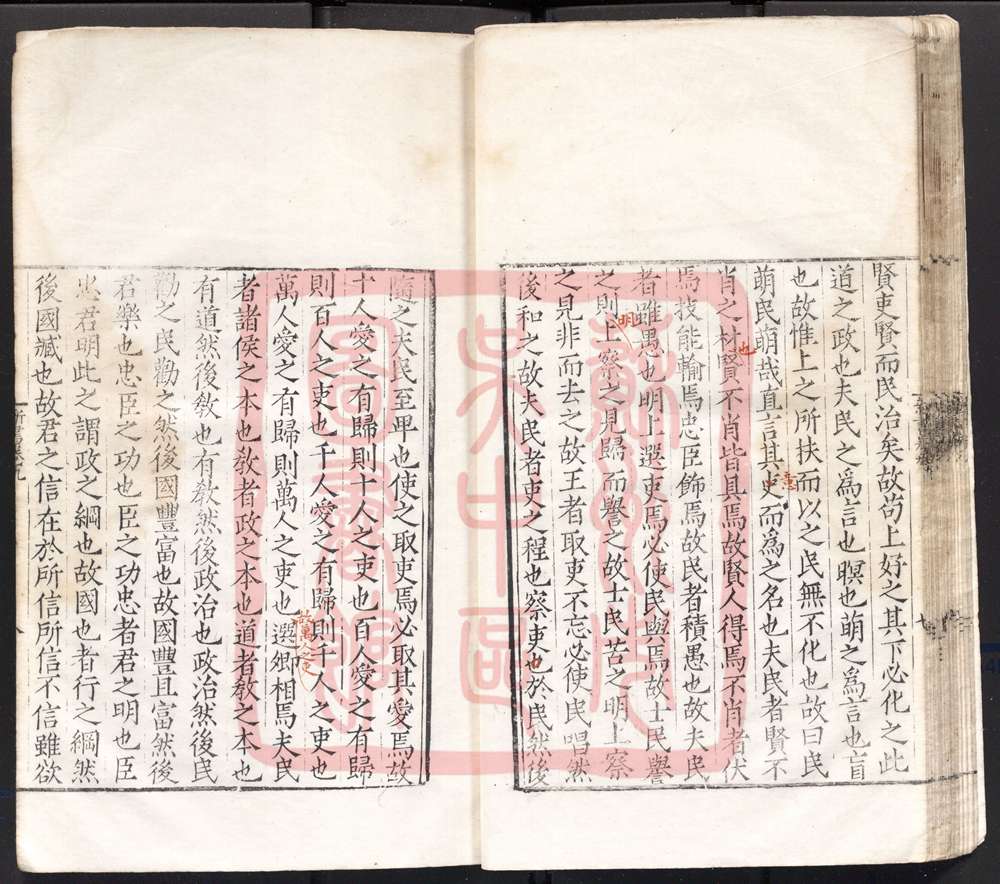 賢吏賢而民治矣故苟上好之其下必化之此
道之政也夫民之為言也暝也萌之為言也盲
也故惟上之所扶而以之民無不化也故曰民
萌民萌哉直言其吏而為之名也夫民者賢不
肖之材賢不肖皆具焉故賢人得焉不肖者伏
焉技能輸焉忠臣飾焉故民者積愚也故夫民
者雖愚也明上選吏焉必使民與焉故士民譽
之則上察之見歸而譽之故士民苦之明上察
之見非而去之故王者取吏不忘必使民唱然
後和之故夫民者吏之程也察吏也於民然後
隨之夫民至卑也使之取吏焉必取其愛焉故
十人愛之有歸則十人之吏也百人愛之有歸
則百人之吏也千人愛之有歸則千人之吏也
萬人愛之有歸則萬人之吏也選卿相焉夫民
者諸侯之本也教者政之本也道者教之本也
有道然後教也有教然後政治也政治然後民
勸之民勸之然後國豐富也故國豐且富然後
君樂也忠臣之功也臣之功忠者君之明也臣
忠君明此之謂政之綱也故國也者行之綱然
後國臧也故君之信在於所信所信不信雖欲
也
意
明
也
故萬人之吏
蘇州市吳中區圖書館